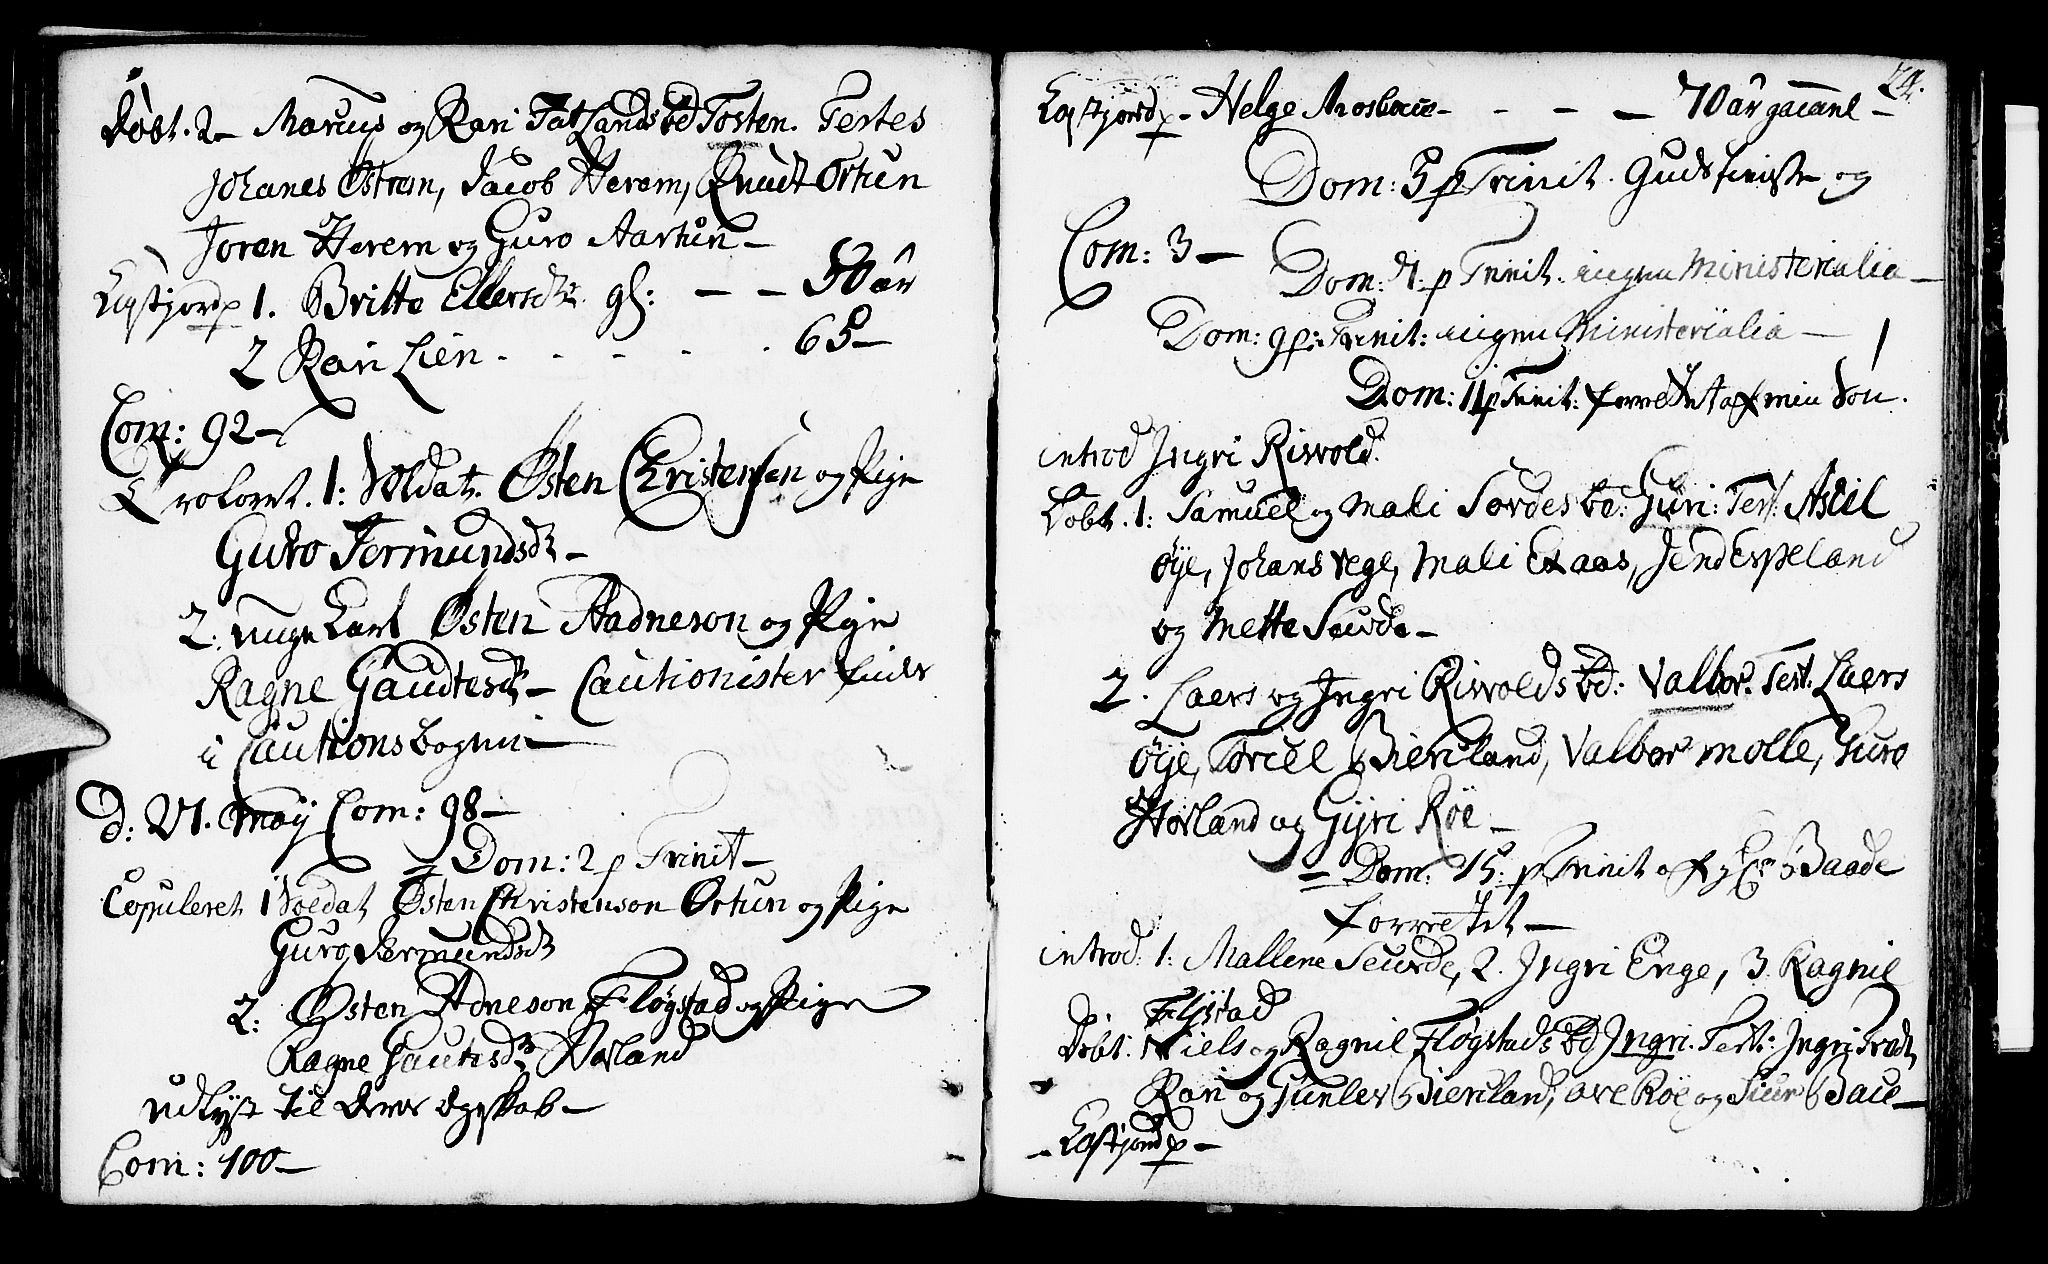 Döbt. 2 - Marcus og Kari Tatlands bd Tosten. Testes
Johanes Østrem, Jacob Herem, Knudt Ortun
Joren Herem og Guro Aartun -
1. Britte Ellersdtr. gl: - - 50 år
2 Kari Lien . . . . . 65 -
Com: 92 -
Troloret. 1: Soldat. Østen Christensen og Pige
Guro Tormundsdtr -
2: unge Karl Østen Aadneson og Pige
Ragne Gaudtesdtr - Cautionister findes
i Cautionsbogen -
d: 21. Maÿ Com: 98 -
= Dom: 2 p Trinit -
Copuleret 1 Soldat Østen Christenson Ortun og Pige
Guro Termundsdtr
2: Østen Adneson Fløgstad og Pige
Ragne Gautesdtr Hovland
udlyst til deres Egteskab -
Com: 100 -
74.
Helge Mosbace - - - - 70 år gammel -
Dom: 5 p Trinit. Gudstieniste og
Com: 3 -
Dom: 7. p Trinit. ingen Ministerialia -
Dom: 9 p: Trinit: ingen Ministerialia -
Dom: 11 p Trinit: forrettet af min Søn.
introd Ingri Risvold.
Döbt. 1: Samuel og Mali Sordes bd: Guri: Test: Askil
Øÿe, Johans Vege, Mali Exaas, Jend Espeland
og Mette Seurde -
2. Laers og Ingri Risvolds bd: Valbor. Test. Laers
Øÿe, Toriel Bierkland, Valbor Molle, Guro
Hovland og Gÿri Röe -
= Dom: 15: p Trinit af Hr Baade
forrettet -
introd: 1: Mallene Seurde, 2. Ingri Enge, 3. Ragnil
Flÿstad
Döbt. Niels og Ragnil Fløgstads bd Ingri. Test: Ingri
Kari og Gunler Bierkland, Are Röe og Siur Baue -